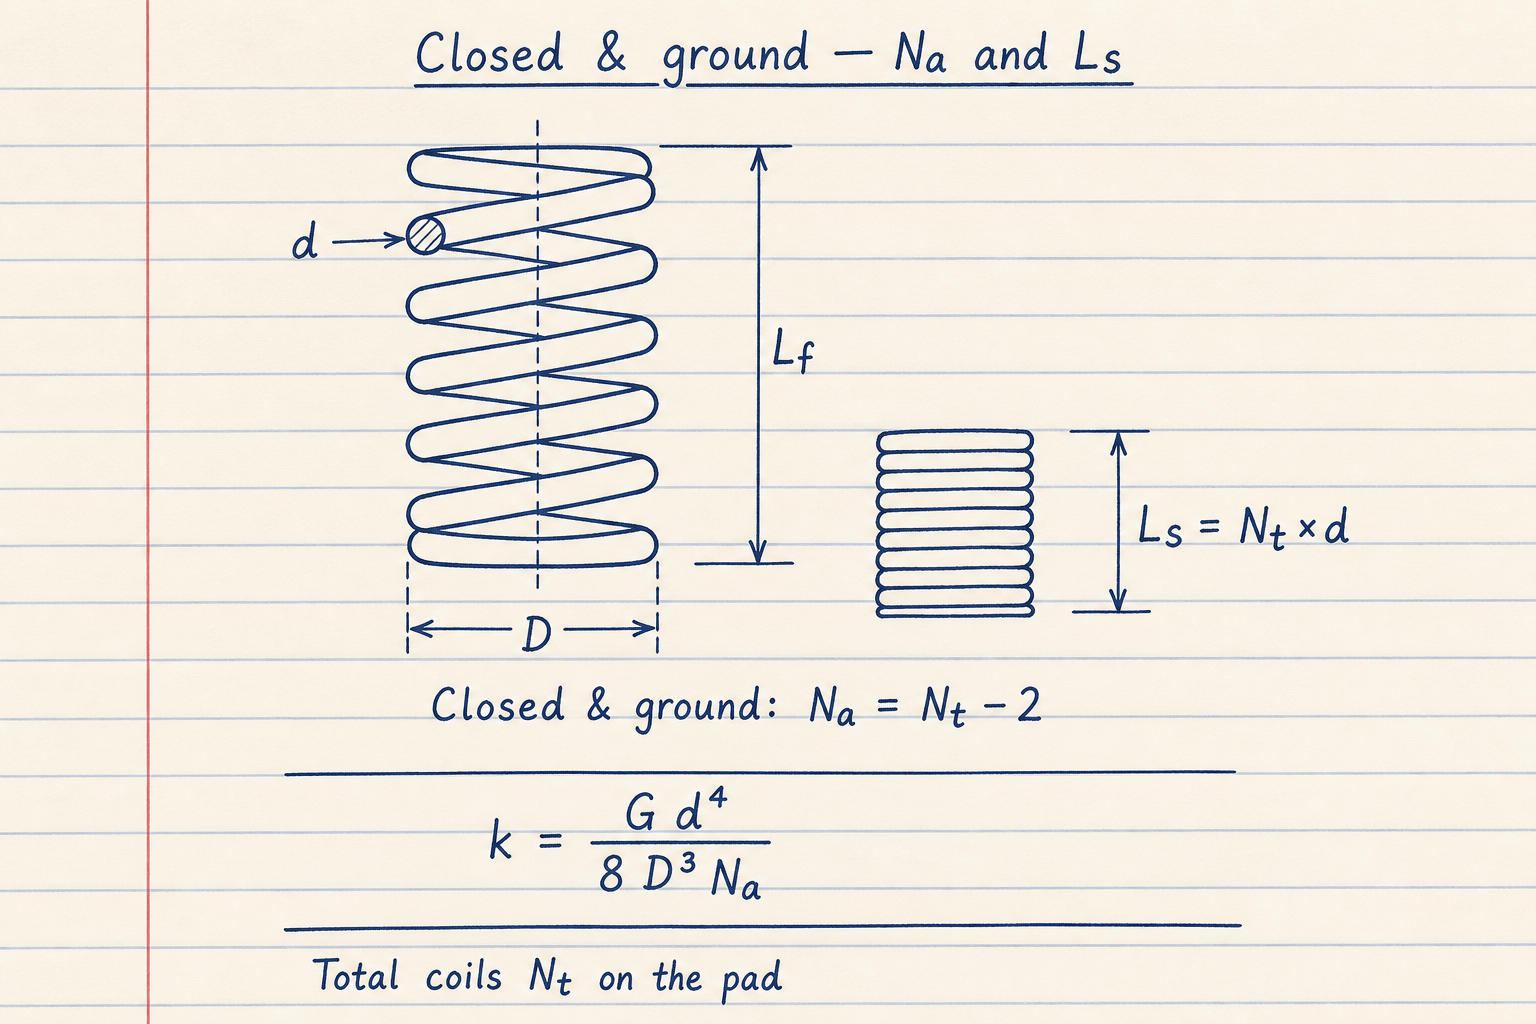 Closed & ground — Na and Ls
d
Lf
Ls = Nt × d
D
Closed & ground: Na = Nt − 2
k = G d⁴ / 8 D³ Na
Total coils Nt on the pad